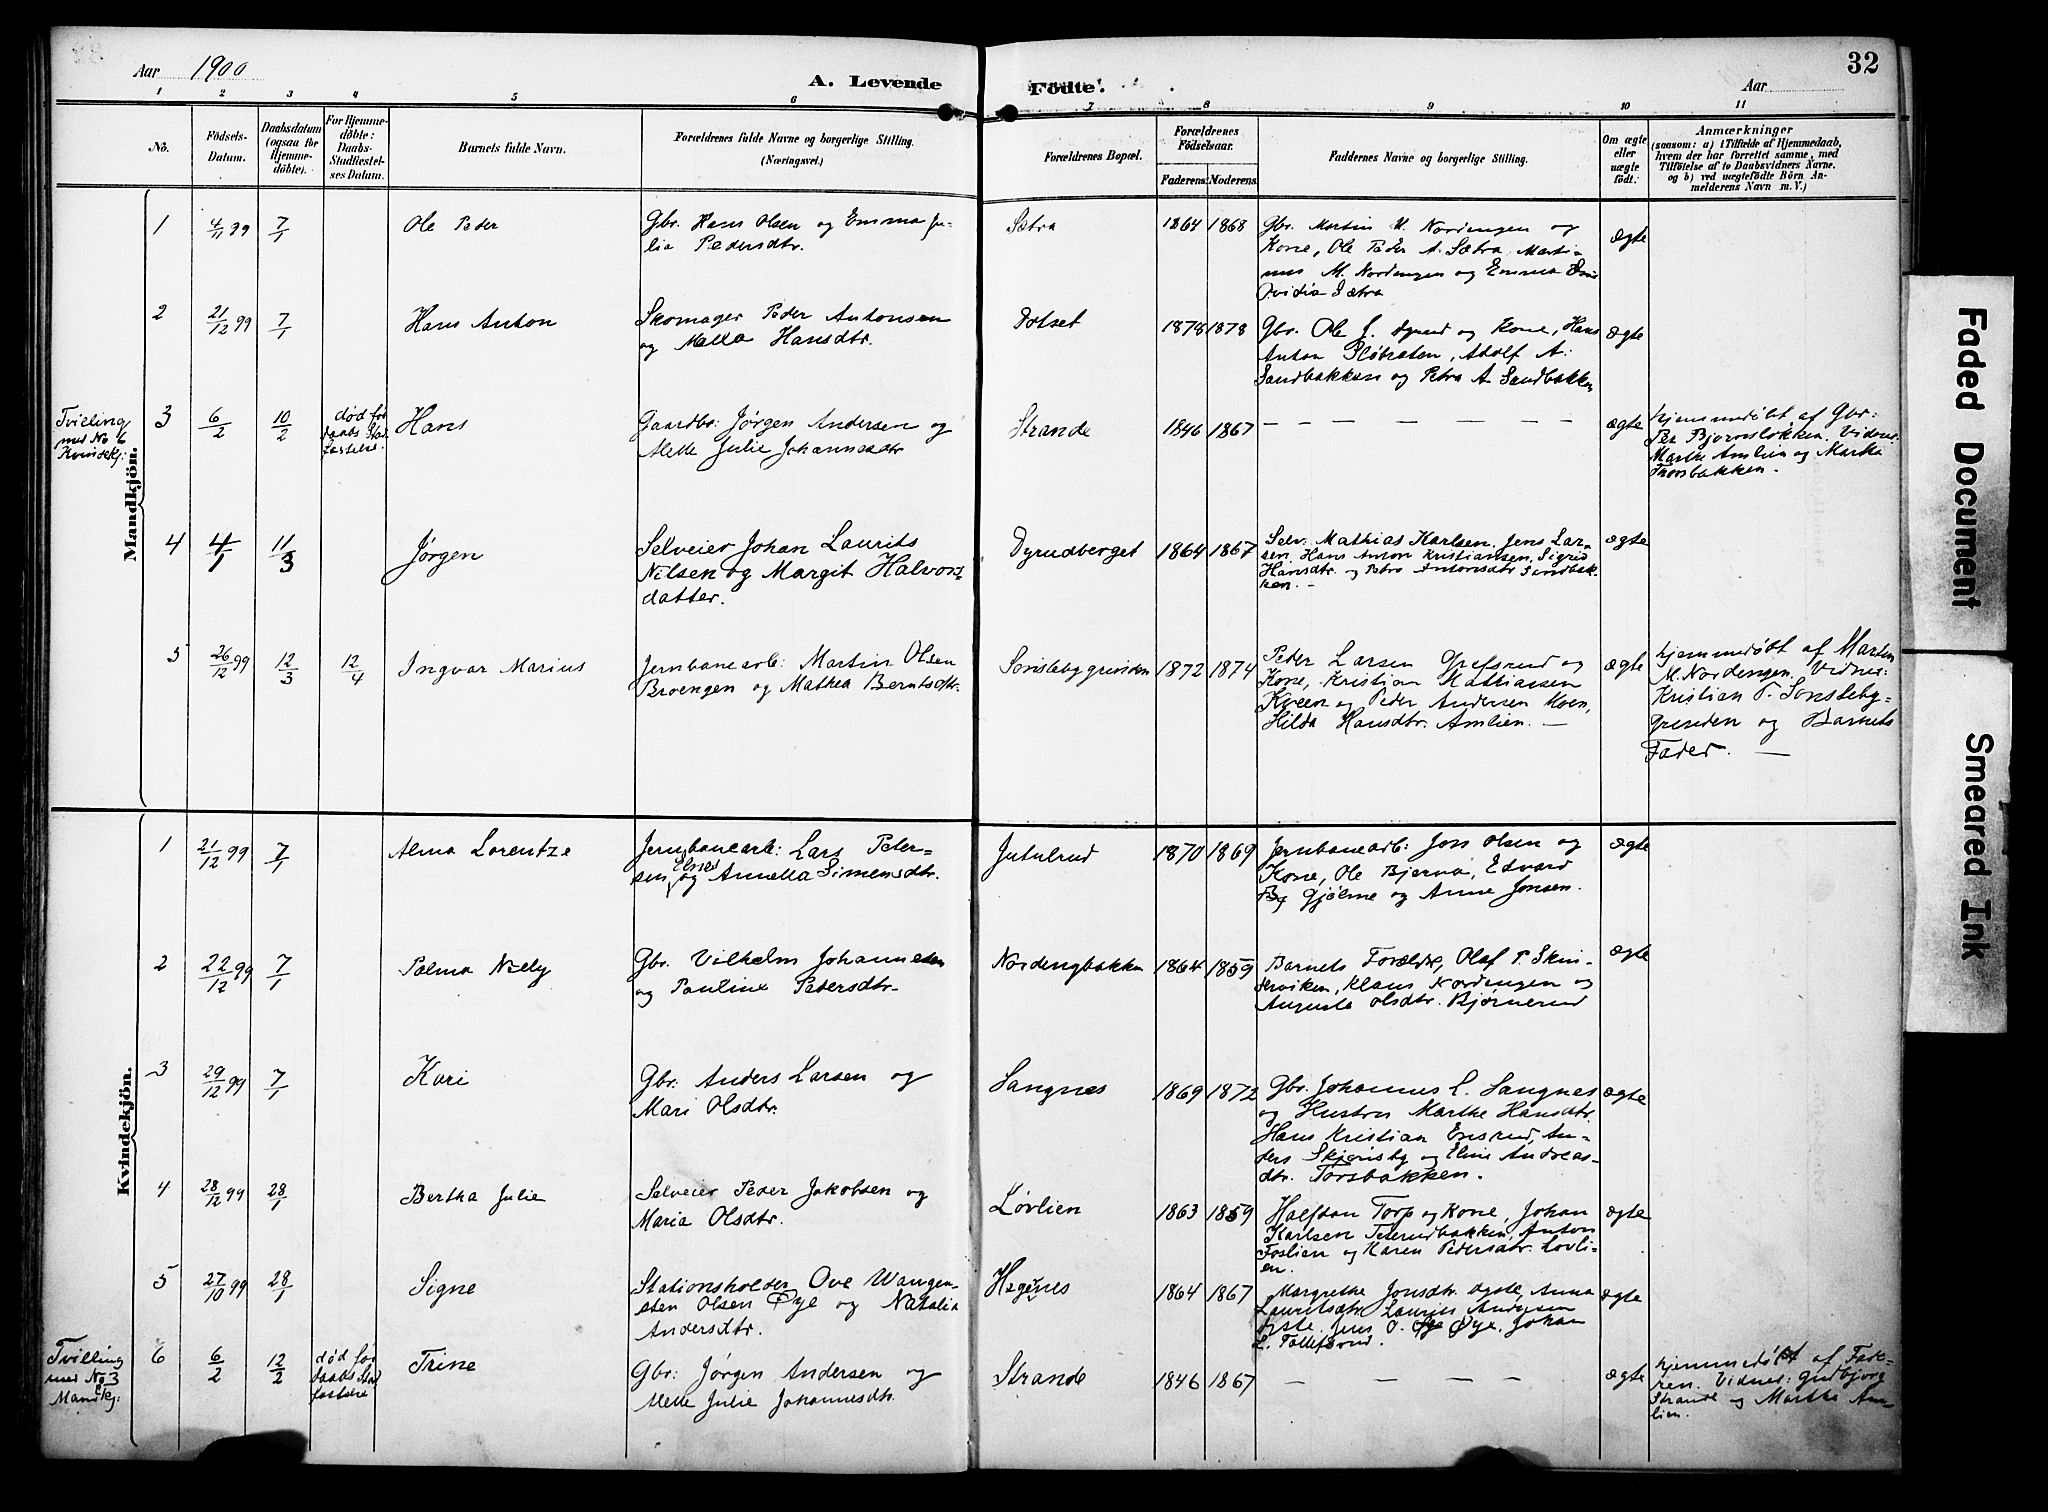 Aar 1900
A. Levende
Fødte.
Aar
32
1 2 3 4 5 6 7 8 9 10 11
No.
Fødsels-
Datum.
Daabsdatum
(ogsaa for
Hjemme-
døbte).
For Hjemme-
døbte:
Daabs-
Stadfæstel-
ses Datum.
Barnets fulde Navn.
Forældrenes fulde Navne og borgerlige Stilling.
(Næringsvei.)
Forældrenes Bopæl.
Forældrenes
Fødselsaar.
Faderens. Moderens.
Faddernes Navne og borgerlige Stilling.
Om ægte
eller
uægte
født.
Anmærkninger
(saasom: a) i Tilfælde af Hjemmedaab,
hvem der har forrettet samme, med
Tilføielse af to Daabsvidners Navne.
og b) ved uægtefødte Børn An-
melderens Navn m. V.)
Mandkjøn.
1
4/11 99
7/1
Ole Peder
Gbr. Hans Olsen og Emma Ju-
lia Pedersdtr.
Sætra
1864 1868
Gbr. Martin M. Nordengen og
Kone, Ole Peder A. Sætra, Marti-
nus M. Nordengen og Emma
Ovidia Sætra
ægte
2
21/12 99
7/1
Hans Anton
Skomager Peder Antonsen
og Mella Hansdtr.
Dotset
1878 1878
Gbr. Ole J. Dyrud og Kone, Hans
Anton Pløtraten, Adolf A.
Sandbakken og Petra A. Sandbakken
ægte
Tvilling
med No 6
Kvindekj:
3
6/2
10/2
død før
Daabs Stad
fæstelse
Hans
Gaardbr: Jørgen Andersen og
Mette Julie Johannesdtr
Strande
1846 1867
— — — — — — —
ægte
hjemmedøbt af Gbr:
Per Bjørnsløkken. Vidner
Marthe Amlien og Marthe
Thorsbakken.
4
4/1
11/3
Jørgen
Selveier Johan Laurits
Nilsen og Margit Halvors-
datter.
Dyrudberget
1864 1867
Selv. Mathias Karlsen, Jens Lar-
sen, Hans Anton Kristiansen, Sigrid
Hansdtr. og Petra Antonsdtr Sandbak-
ken. —
ægte
5
26/12 99
12/3
12/4
Ingvar Marius
Jernbanearb: Martin Olsen
Broengen og Mathea Berntsdtr.
Sønstebygrenden
1872 1874
Peder Larsen Grefsrud og
Kone, Kristian Mathiassen
Kveen og Peder Andersen Moen,
Hilda Hansdtr. Amlien. —
ægte
hjemmedøbt af Martin
M. Nordengen, Vidner:
Kristian P. Sønsteby-
grenden og Barnets
Fader. —
Kvindekjøn.
1
21/12 99
7/1
Alma Lorentze
Jernbanearb: Lars Peter-
sen og Annetta Simensdtr.
Jutulrud
1870 1869
Jernbanearb: Jon Olsen og
Kone, Ole Bjerva, Edvard
Gjølme og Anne Jonsen.
ægte
2
22/12 99
7/1
Palma Nicly
Gbr. Vilhelm Johannesen
og Pauline Petersdtr.
Nordengbakken
1864 1859
Barnets Forældre, Olaf P. Skin-
derviken, Klaus Nordengen og
Augusta Olsdtr. Bjørnerud
ægte
3
29/12 99
7/1
Kari
Gbr: Anders Larsen og
Mari Olsdtr.
Sangnes
1869 1872
Gbr. Johannes L. Sangnes
og Hustru Marthe Hansdtr.
Hans Kristian Ensrud, An-
ders Skjønsby og Eline Andreas-
dtr. Torsbakken.
ægte
4
28/12 99
28/1
Bertha Julie
Selveier Peder Jakobsen og
Maria Olsdtr.
Løvlien
1863 1859
Halfdan Torp og Kone, Johan
Karlsen Peterudbakken, Anton
Foslien og Karen Pedersdtr. Lovli-
en.
ægte
5
27/10 99
28/1
Signe
Stationsholder Ove Wangen-
sten Olsen Øye og Natalia
Andersdtr.
Hegenes
1864 1867
Margrethe Jonsdtr. Dyste, Anna
Lauritsdtr. Laurits Andersen
Dyste. Jens O. Øye. Johan
L. Tollefsrud.
ægte
Tvilling
med No 3
Mandkj:
6
6/2
12/2
død før
Daabs Stad
fæstelse
Trine
Gbr: Jørgen Andersen og
Mette Julie Johannesdtr.
Strande
1846 1867
— — — — — — —
ægte
hjemmedøbt af Fade-
ren. Vidner: Gudbjørg
Strande og Marthe Am-
lien.
Faded Document
Smeared Ink